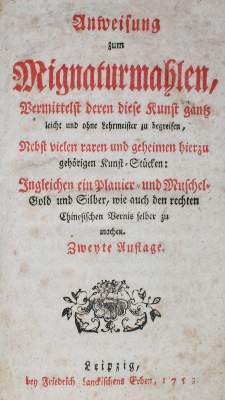 Anweisung
zum
Mignaturmahlen,
Vermittelst deren diese Kunst gantz
leicht und ohne Lehrmeister zu begreifen,
Nebst vielen raren und geheimen hierzu
gehörigen Kunst-Stücken:
Ingleichen ein Planier- und Muschel-
Gold und Silber, wie auch den rechten
Chinesischen Vernis selber zu
machen.
Zweyte Auflage.
Leipzig,
bey Friedrich Lanckischens Erben, 1753